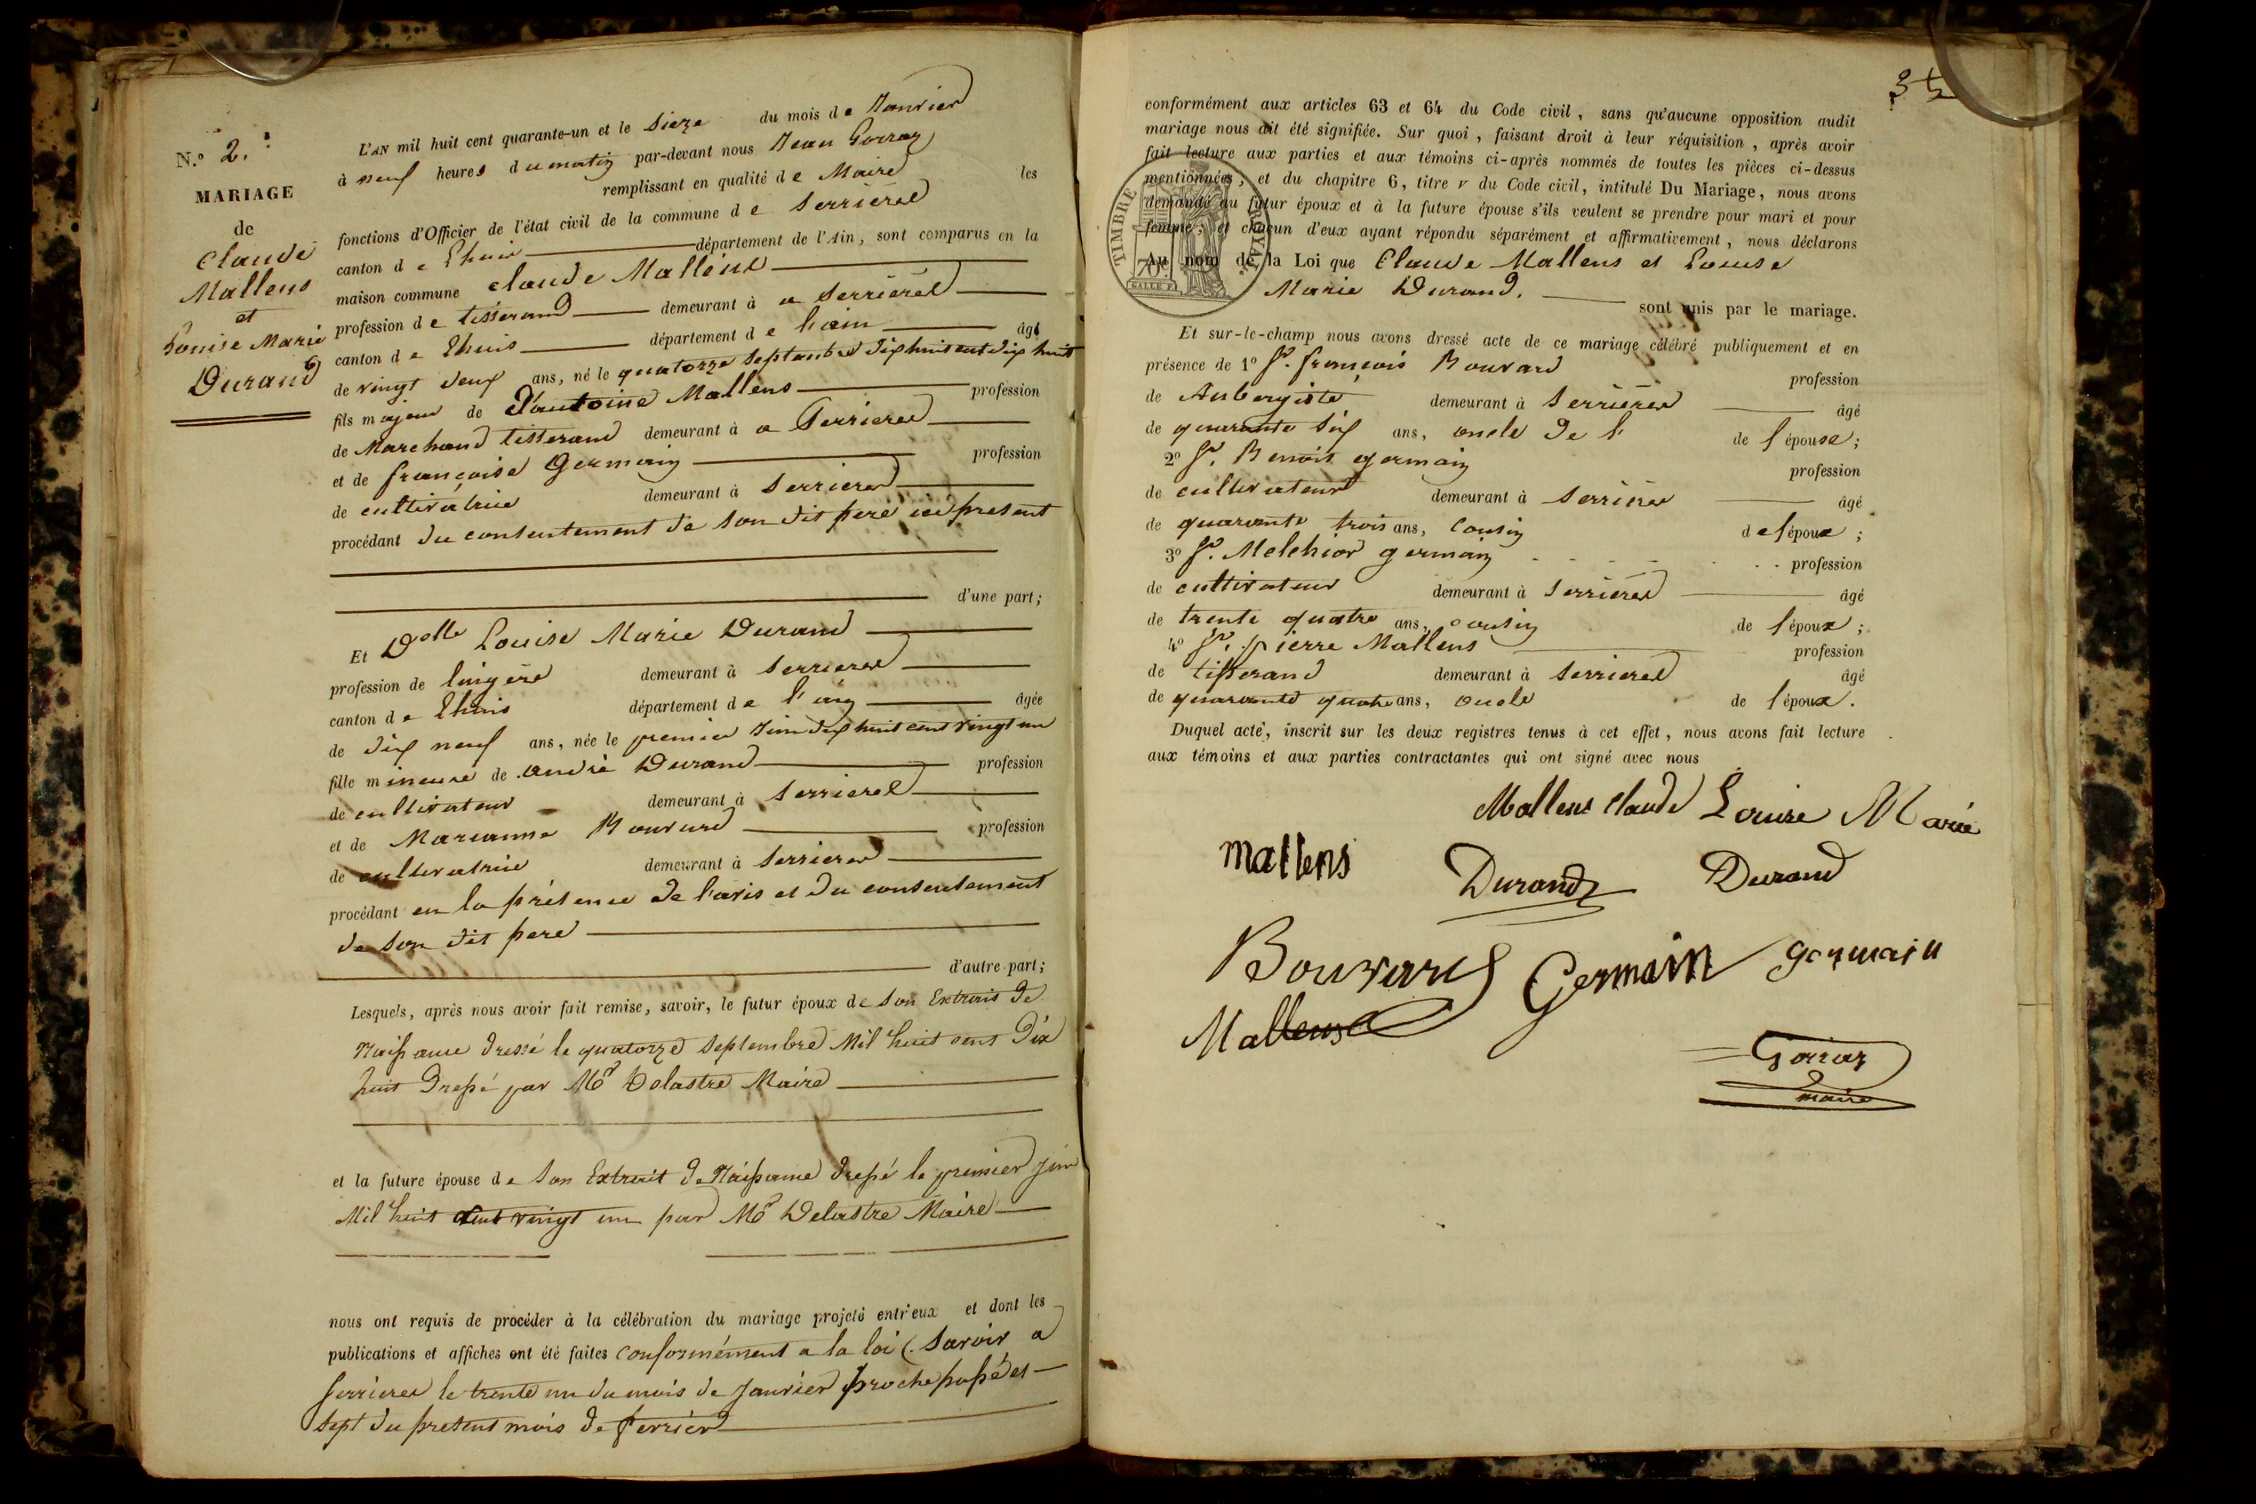 N.° 2.
MARIAGE
de
Claude
Mallens
et
Louise Marie
Durand
L'AN mil huit cent quarante-un et le sieze du mois de Janvier
à neuf heures du matin par-devant nous Jean Gorraz
remplissant en qualité de Maire les
fonctions d'Officier de l'état civil de la commune de Serrieres
canton de Lhuis département de l'Ain, sont comparus en la
maison commune Claude Mallens
profession de tisserand demeurant à a Serrieres
canton de Lhuis département de l'ain âgé
de vingt deux ans, né le quatorze septembre dix huit cent dix huit
fils majeur de d'antoine Mallens profession
de Marchand tisserand demeurant à a Serrieres
et de françoise Germain profession
de cultivatrice demeurant à Serrieres
procédant du consentement de son dit pere ici present
d'une part;
Et Delle Louise Marie Durand
profession de lingere demeurant à Serrieres
canton de Lhuis département de l'ain âgée
de dix neuf ans, née le premier Juin dix huit cent vingt un
fille mineure de andré Durand profession
de cultivateur demeurant à Serrieres
et de Marianne Bouvard profession
de cultivatrice demeurant à Serrieres
procédant en la présence de l'avis et du consentement
de son dit pere
d'autre part;
Lesquels, après nous avoir fait remise, savoir, le futur époux de son Extrais de
Naissance dressé le quatorze septembre Mil huit cent Dix
huit Dressé par Mr Delastre Maire
et la future épouse de son Extrait de Naissance dressé le premier juin
Mil huit cent vingt un par Mr Delastre Maire
nous ont requis de procéder à la célébration du mariage projeté entr'eux et dont les
publications et affiches ont été faites conformément a la loi (savoir a
Serrieres le trente un du mois de Janvier proche passé et
sept du present mois de fevrier
conformément aux articles 63 et 64 du Code civil, sans qu'aucune opposition audit
mariage nous ait été signifiée. Sur quoi, faisant droit à leur réquisition, après avoir
fait lecture aux parties et aux témoins ci-après nommés de toutes les pièces ci-dessus
mentionnées, et du chapitre 6, titre V du Code civil, intitulé Du Mariage, nous avons
demandé au futur époux et à la future épouse s'ils veulent se prendre pour mari et pour
femme; et chacun d'eux ayant répondu séparément et affirmativement, nous déclarons
Au nom de la Loi que Claude Mallens et Louise
Marie Durand.
sont unis par le mariage.
TIMBRE ROYAL
70c
Et sur-le-champ nous avons dressé acte de ce mariage célébré publiquement et en
présence de 1° Sr. françois Bouvard profession
de Aubergiste demeurant à Serrieres âgé
de quarante six ans, oncle de l' de l'épouse;
2° Sr. Benoit germain profession
de cultivateur demeurant à Serrieres âgé
de quarante trois ans, Cousin de l'époux;
3° Sr. Melchior germain profession
de cultivateur demeurant à Serrieres âgé
de trente quatre ans, cousin de l'époux;
4° Sr. pierre Mallens profession
de tisserand demeurant à Serrieres âgé
de quarante quatre ans, oncle de l'époux.
Duquel acte, inscrit sur les deux registres tenus à cet effet, nous avons fait lecture
aux témoins et aux parties contractantes qui ont signé avec nous
Mallens Claude Louise Marie
mallens Durand Durand
Bouvard Germain germain
Mallens
Gorraz
maire